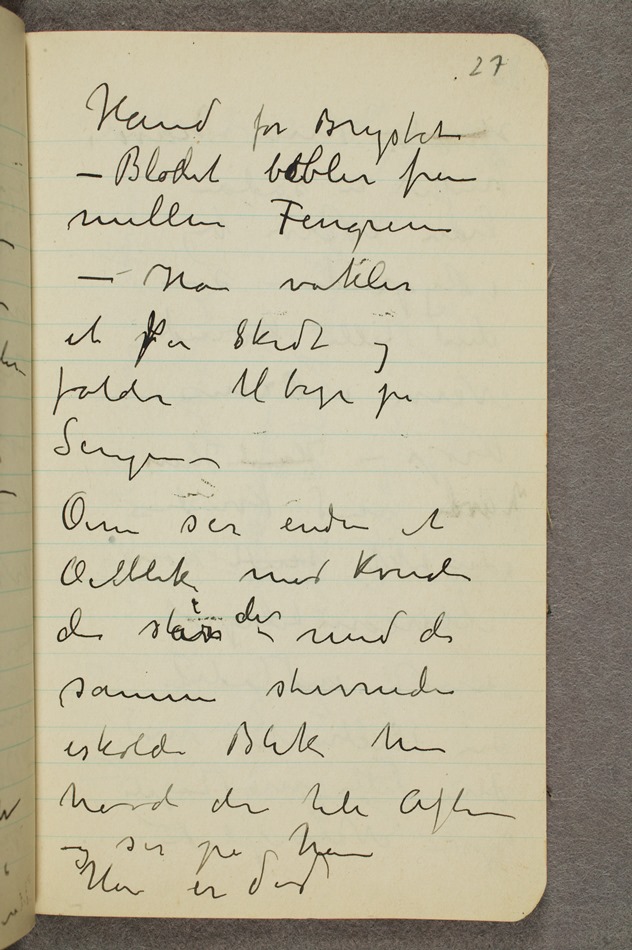 27
Haand for Brystet
– Blodet bobler frem
mellem Fingrene
– Han vakler
et Par Skridt og
falder tilbage på
Sengen –
Øine ser endnu et
Øieblik mod Kvinden
der står der med det
samme stivnede
iskolde Blik hun
havde den hele Aften
og ser på ham
Han er død